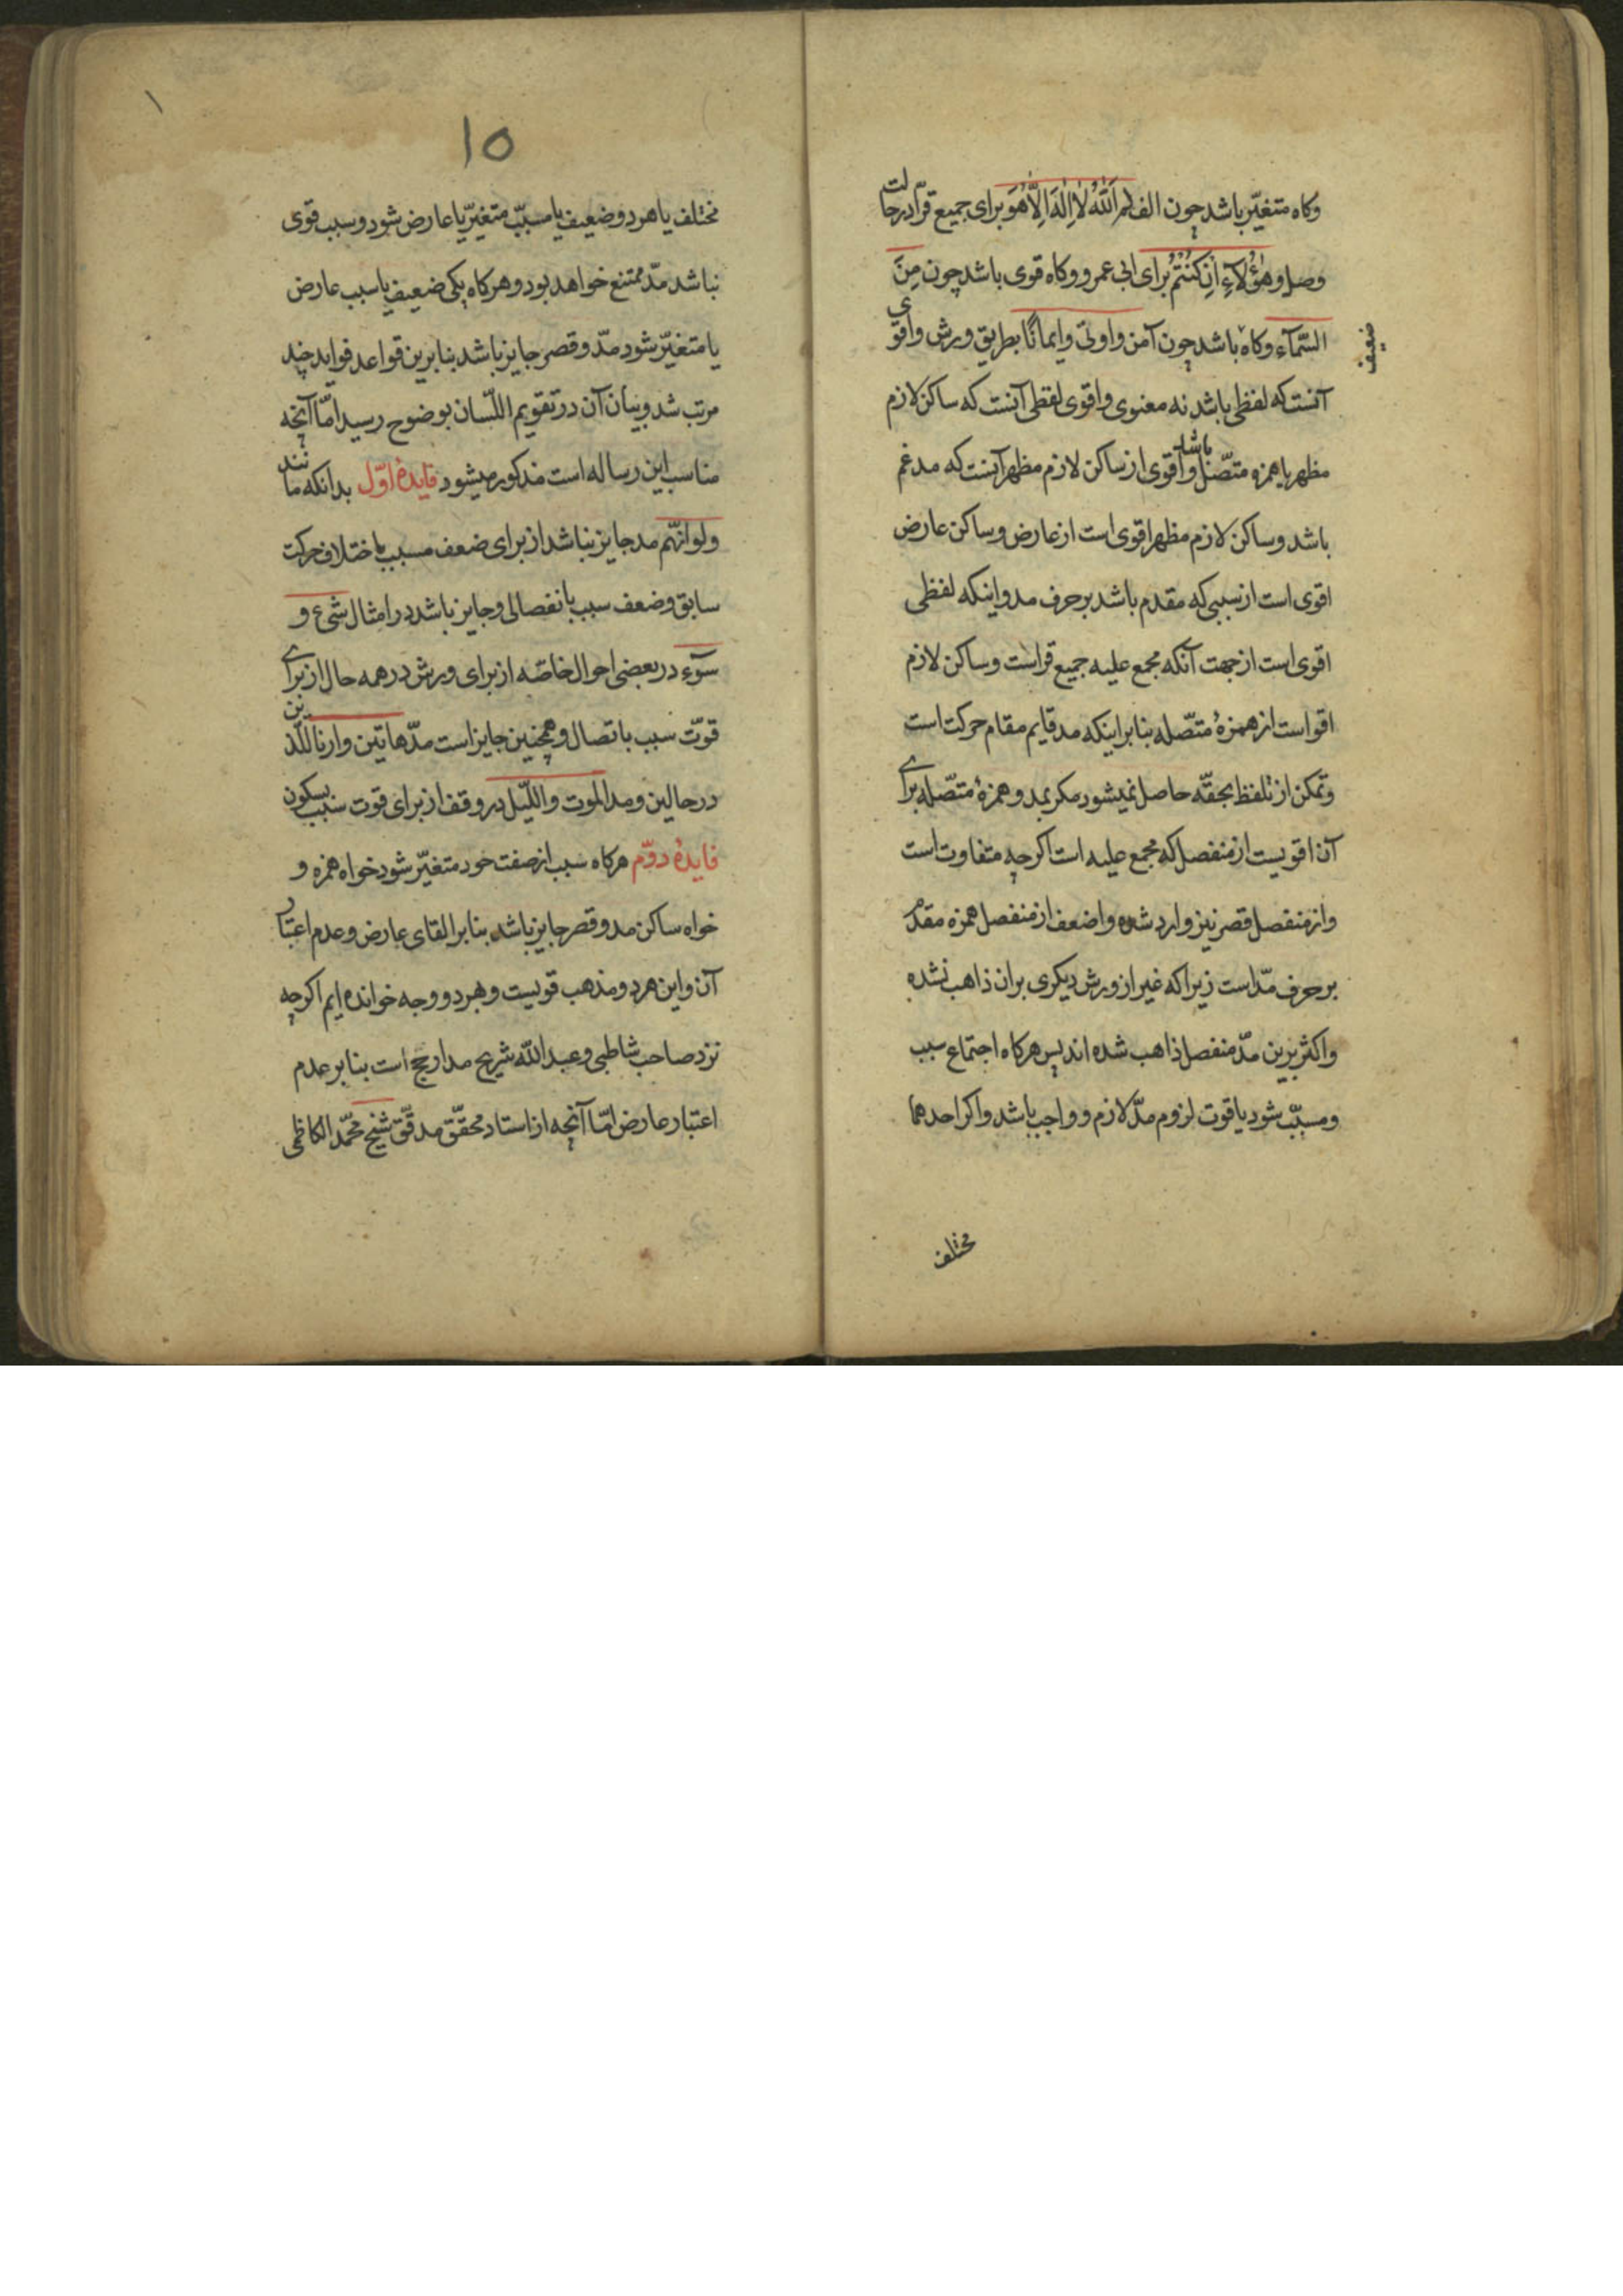 وکاه متغیّر باشد چون الف الم اَللّٰهُ لاٰ اِلٰهَ اِلّاٰ هُوَ برای جمیع قرّا در حالت
وصل و هٰؤُلآءِ اِنْ کُنْتُمْ برای ابی عمرو وکاه قوی باشد چون مِنَ
السَّمآء وکاه باشد چون آمن واوتی وایمانًا بطریق ورش واقوی
ضعیف
آنست که لفظی باشد نه معنوی واقوی لفظی آنست که ساکن لازم
مظهر یا همزه متّصل باشد واقوی از ساکن لازم مظهر آنست که مدغم
باشد وساکن لازم مظهر اقوی است از عارض وساکن عارض
اقوی است از سببی که مقدم باشد بر حرف مد واینکه لفظی
اقوی است از جهت آنکه مجمع علیه جمیع قراست وساکن لازم
اقواست از همزهٔ متّصله بنابر اینکه مد قایم مقام حرکت است
وتمکن از تلفظ بحقّه حاصل نمیشود مکر بمد وهمزهٔ متّصله برای
آن اقویست از منفصل که مجمع علیه است اکرچه متفاوت است
واز منفصل قصر نیز وارد شده واضعف از منفصل همزه مقدم
بر حرف مدّ است زیرا که غیر از ورش دیکری بران ذاهب نشده
واکثر برین مدّ منفصل ذاهب شده اند پس هرکاه اجتماع سبب
ومسبّب شود یا قوت لزوم مدّ لازم وواجب باشد واکر احدهما
مختلف
۱
۱۵
مختلف یا هر دو ضعیف یا مسبّب متغیّر یا عارض شود وسبب قوی
نباشد مدّ ممتنع خواهد بود وهرکاه یکی ضعیف یا سبب عارض
یا متغیّر شود مدّ وقصر جایز باشد بنابرین قواعد فواید چند
مرتب شد وبیان آن در تقویم اللّسان بوضوح رسید امّا آنچه
مناسب این رساله است مذکور میشود فایدهٔ اوّل بدانکه مانند
ولو انّهم مد جایز نباشد از برای ضعف مسبب باختلاف حرکت
سابق وضعف سبب بانفصالی وجایز باشد در امثال شیء و
سوٓء در بعضی احوال خاصّه از برای ورش در همه حال از برای
قوّت سبب باتصال وهمچنین جایز است مدّ هاتین وارنا اللّذین
در حالین ومد الموت واللّیل در وقف از برای قوت سبب بسکون
فایدهٔ دوّم هرکاه سبب از صفت خود متغیّر شود خواه همزه و
خواه ساکن مد وقصر جایز باشد بنابر القای عارض وعدم اعتبار
آن واین هر دو مذهب قویست وبهر دو وجه خوانده ایم اکرچه
نزد صاحب شاطبی وعبد اللّه شریح مد ارجح است بنابر عدم
اعتبار عارض امّا آنچه از استاد محقّق مدقّق شیخ محمّد الکاظمی